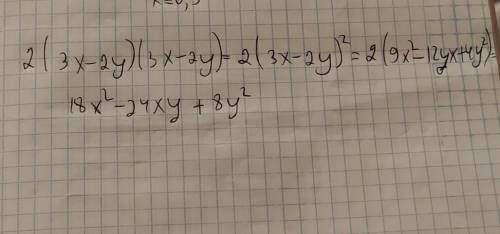 2(3x-2y)(3x-2y)=2(3x-2y)²=2(9x²-12yx+4y²)=
18x²-24xy+8y²